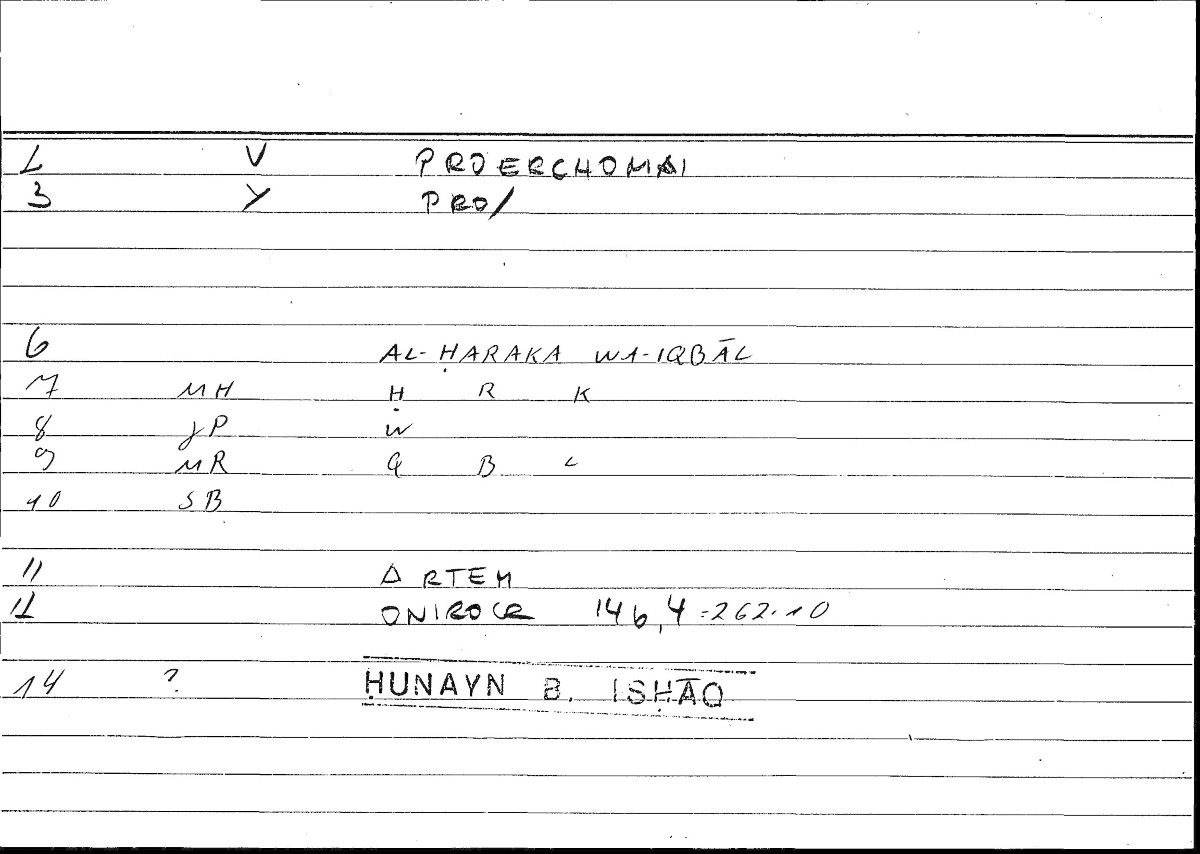 2 V PROERCHOMAI
3 Y PRO/
6 AL-ḤARAKA WA-IQBĀL
7 MH Ḥ R K
8 γP W
9 MR Q B L
10 SB
11 ARTEM
12 ONIROCR 146,4 - 262.10
14 ? ḤUNAYN B. ISḤĀQ